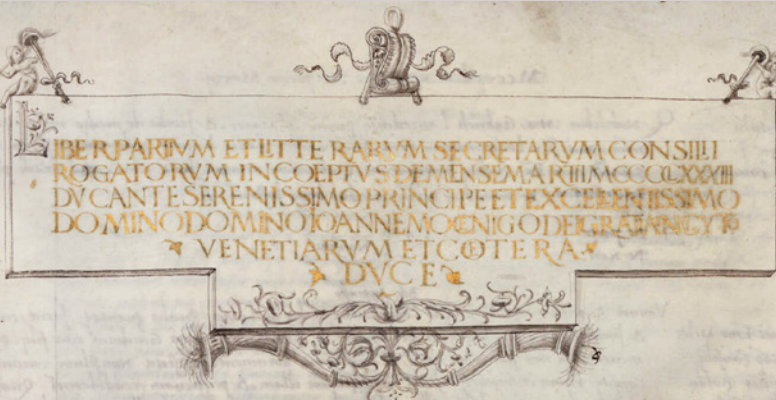 LIBER PARTIVM ET LITTERARVM SECRETARVM CONSILII
ROGATORVM INCOEPTVS DE MENSE MARTII MCCCCLXXXIII
DVCANTE SERENISSIMO PRINCIPE ET EXCELLENTISSIMO
DOMINO DOMINO IOANNE MOCENIGO DEI GRATIA
VENETIARVM ET COETERA
DVCE